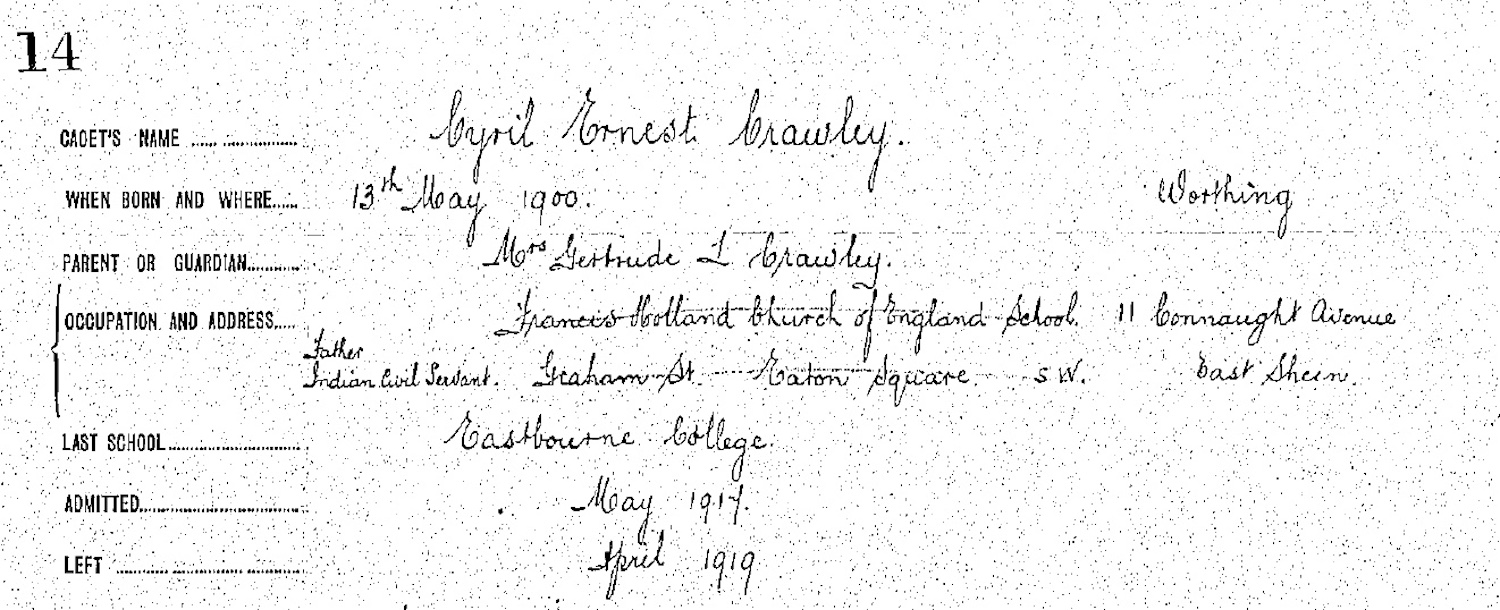 14
CADET'S NAME ...... Cyril Ernest Crawley.
WHEN BORN AND WHERE..... 13th May 1900. Worthing
PARENT OR GUARDIAN.......... Mrs Gertrude L Crawley.
OCCUPATION AND ADDRESS..... Francis Holland Church of England School. 11 Connaught Avenue
Father
Indian Civil Servant. Graham St. Eaton Square S W. East Sheen.
LAST SCHOOL.......... Eastbourne College.
ADMITTED.......... May 1917.
LEFT .......... April 1919